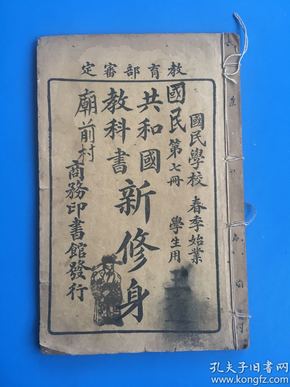 定審部育教
國民學校 春季始業
學生用
國民第七冊
共和國
教科書
新修身
廟前村
商務印書館發行
孔夫子旧书网
www.kongfz.com